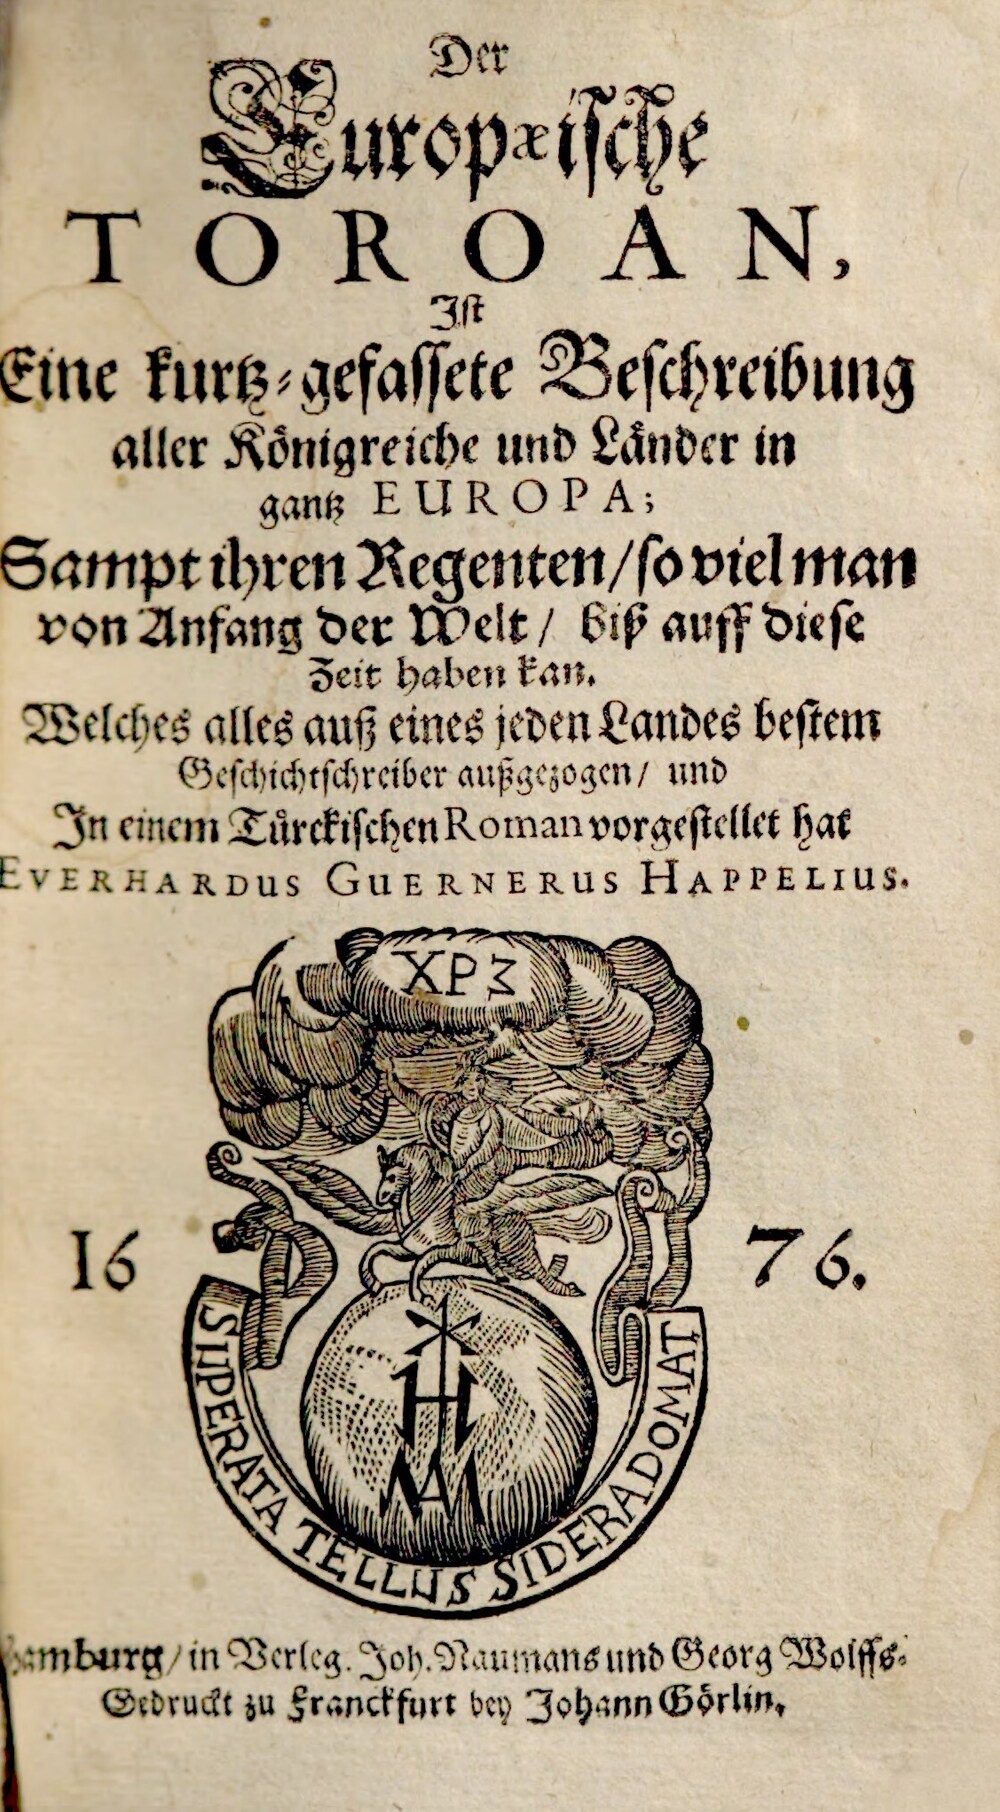 Der
Europæische
TOROAN,
Ist
Eine kurtz-gefassete Beschreibung
aller Königreiche und Länder in
gantz EUROPA;
Sampt ihren Regenten/ so viel man
von Anfang der Welt/ biß auff diese
Zeit haben kan.
Welches alles auß eines jeden Landes bestem
Geschichtschreiber außgezogen/ und
In einem Türckischen Roman vorgestellet hat
EVERHARDUS GUERNERUS HAPPELIUS.
XPS
1676.
H
MA
SUPERATA TELLUS SIDERA DOMAT
Hamburg/ in Verleg. Joh. Naumans und Georg Wolffs.
Gedruckt zu Franckfurt bey Johann Görlin.